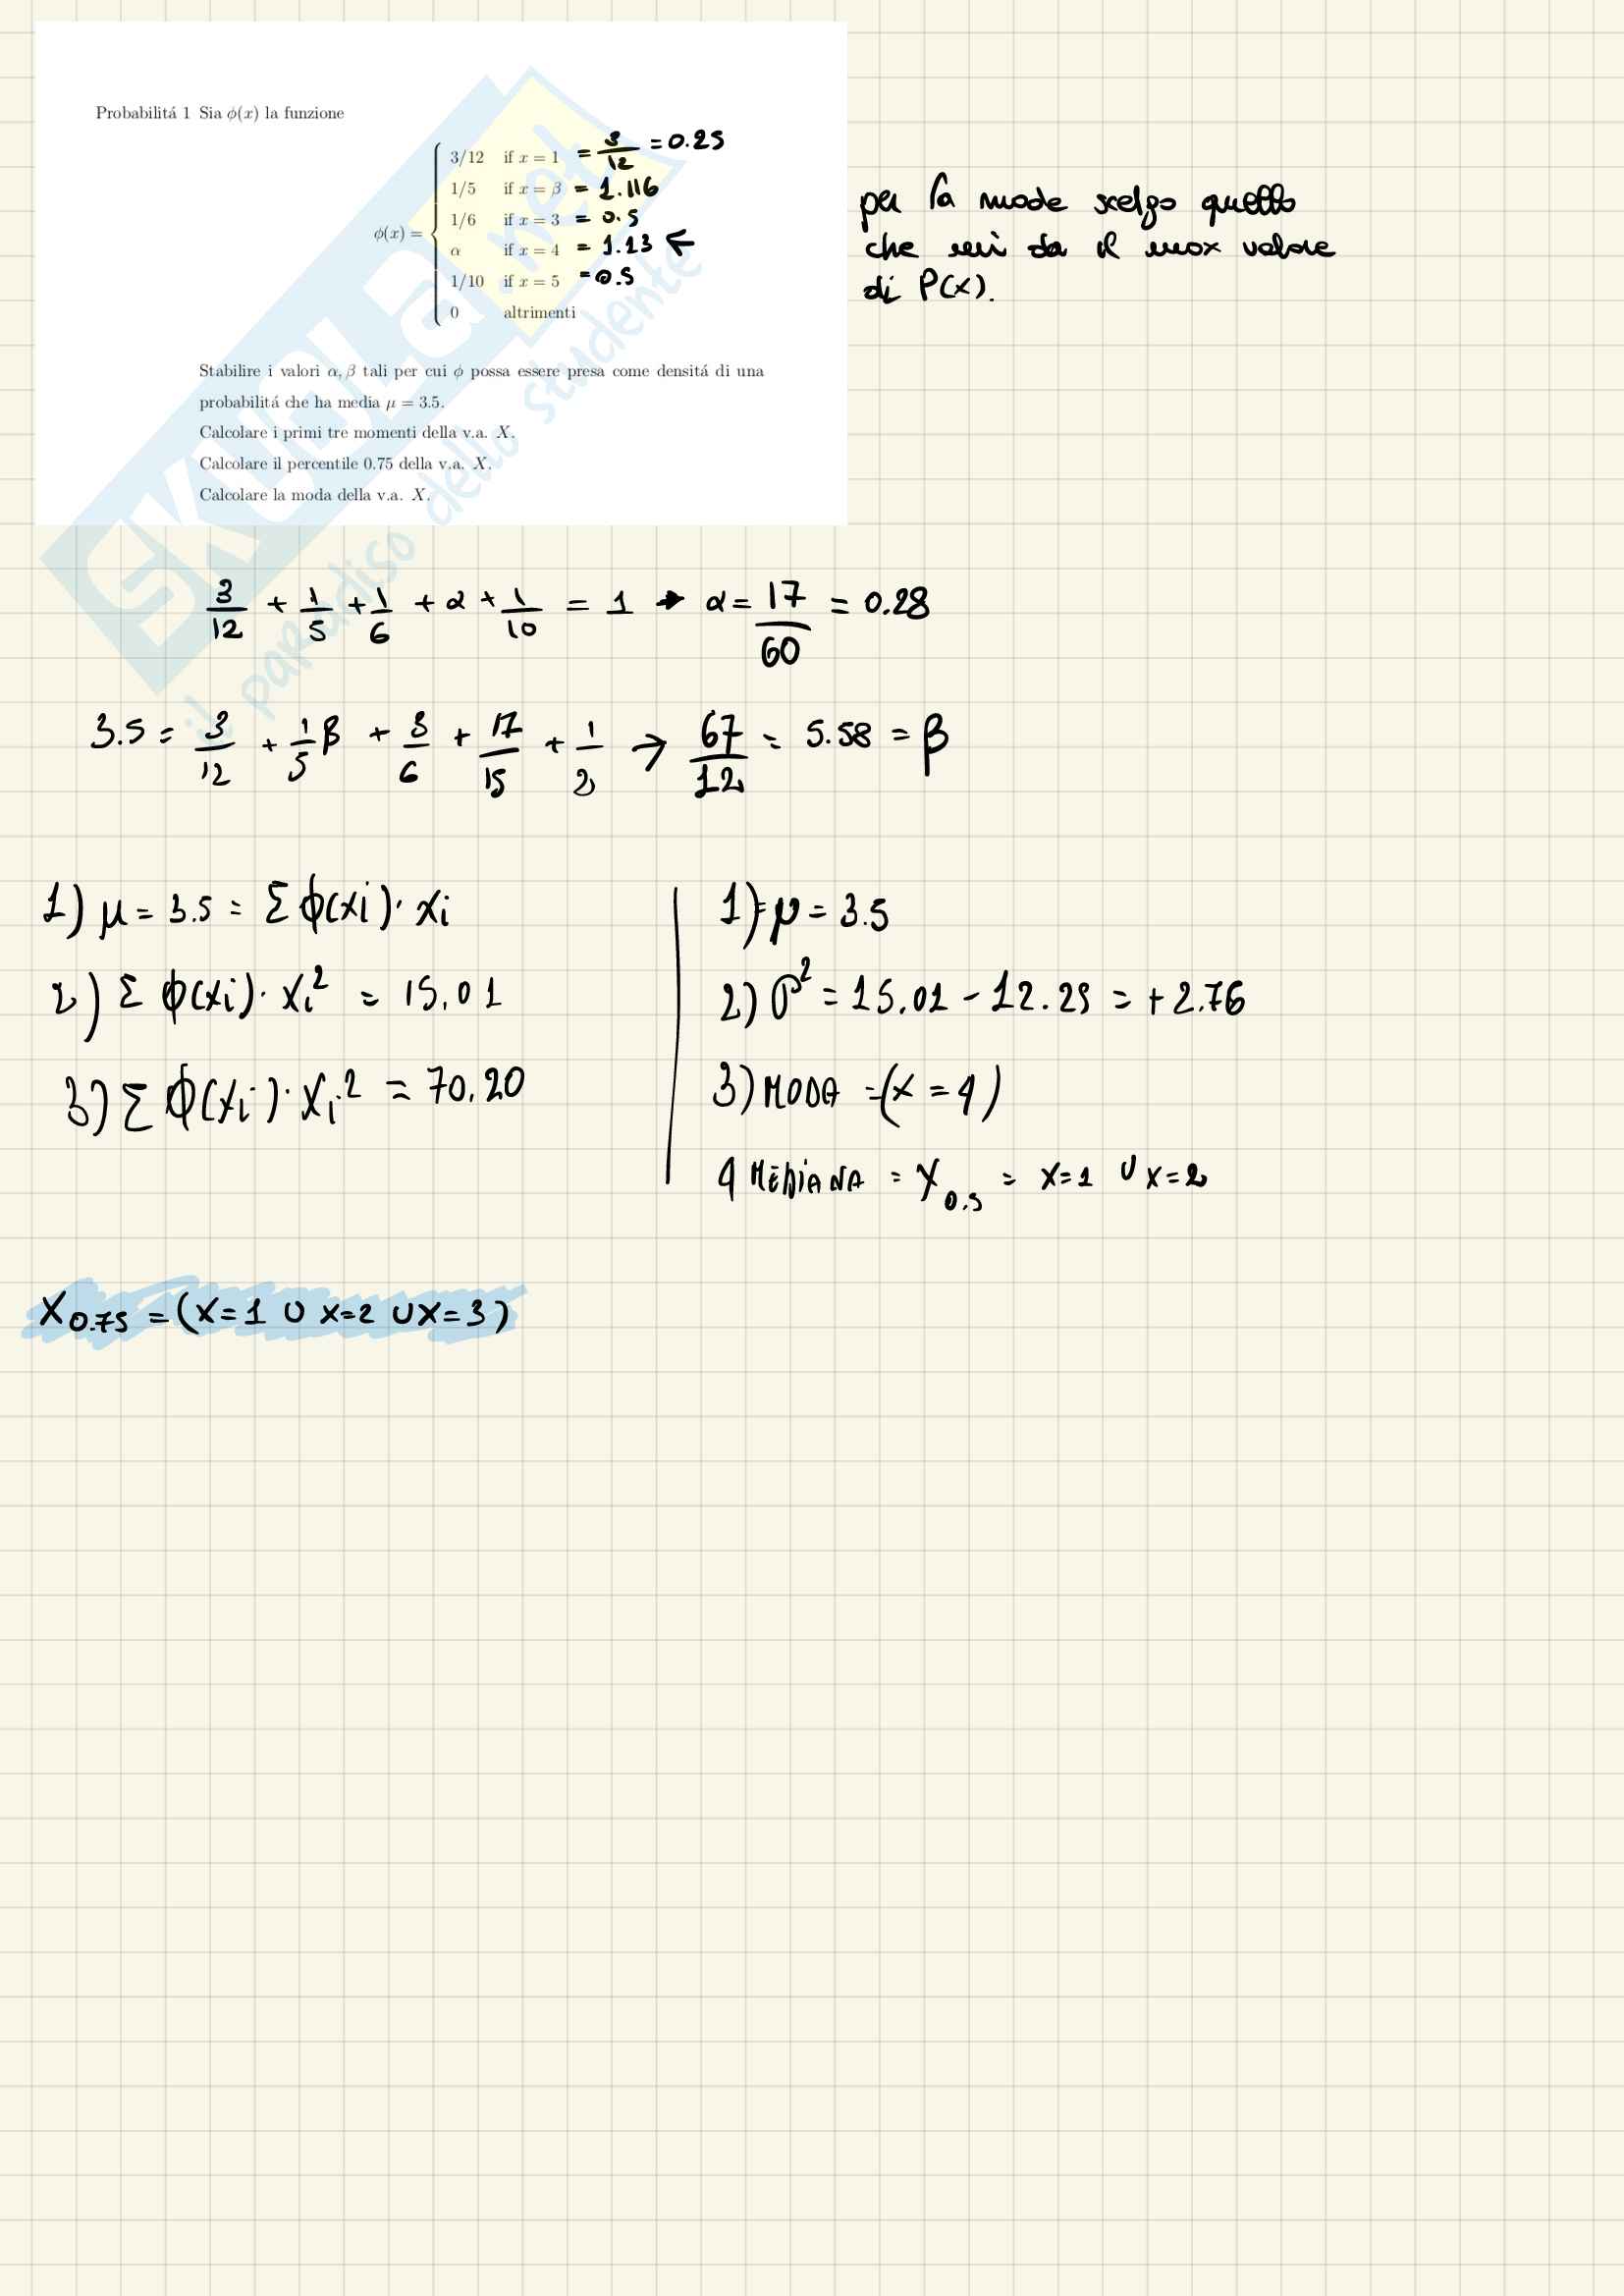 Probabilitá 1 Sia ϕ(x) la funzione
3/12 if x = 1 = 3/12 = 0.25
1/5 if x = β = 1.116
1/6 if x = 3 = 0.5
ϕ(x) =
α if x = 4 = 1.13 ←
1/10 if x = 5 = 0.5
0 altrimenti
per la mode scelgo quello
che mi da il max valore
di P(x).
Stabilire i valori α, β tali per cui ϕ possa essere presa come densitá di una
probabilitá che ha media μ = 3.5.
Calcolare i primi tre momenti della v.a. X.
Calcolare il percentile 0.75 della v.a. X.
Calcolare la moda della v.a. X.
SKUOLA.net
il paradiso dello studente
3/12 + 1/5 + 1/6 + α + 1/10 = 1 → α = 17/60 = 0.28
3.5 = 3/12 + 1/5 β + 3/6 + 17/15 + 1/2 → 67/12 = 5.58 = β
1) μ = 3.5 = Σ ϕ(xi) · xi
2) Σ ϕ(xi) · xi² = 15,01
3) Σ ϕ(xi) · xi² = 70,20
1) = μ = 3.5
2) σ² = 15.01 - 12.25 = + 2.76
3) MODA = (x = 4)
4 MEDIANA = X0.5 = x=1 ∪ x=2
X0.75 = (x=1 ∪ x=2 ∪ x=3)